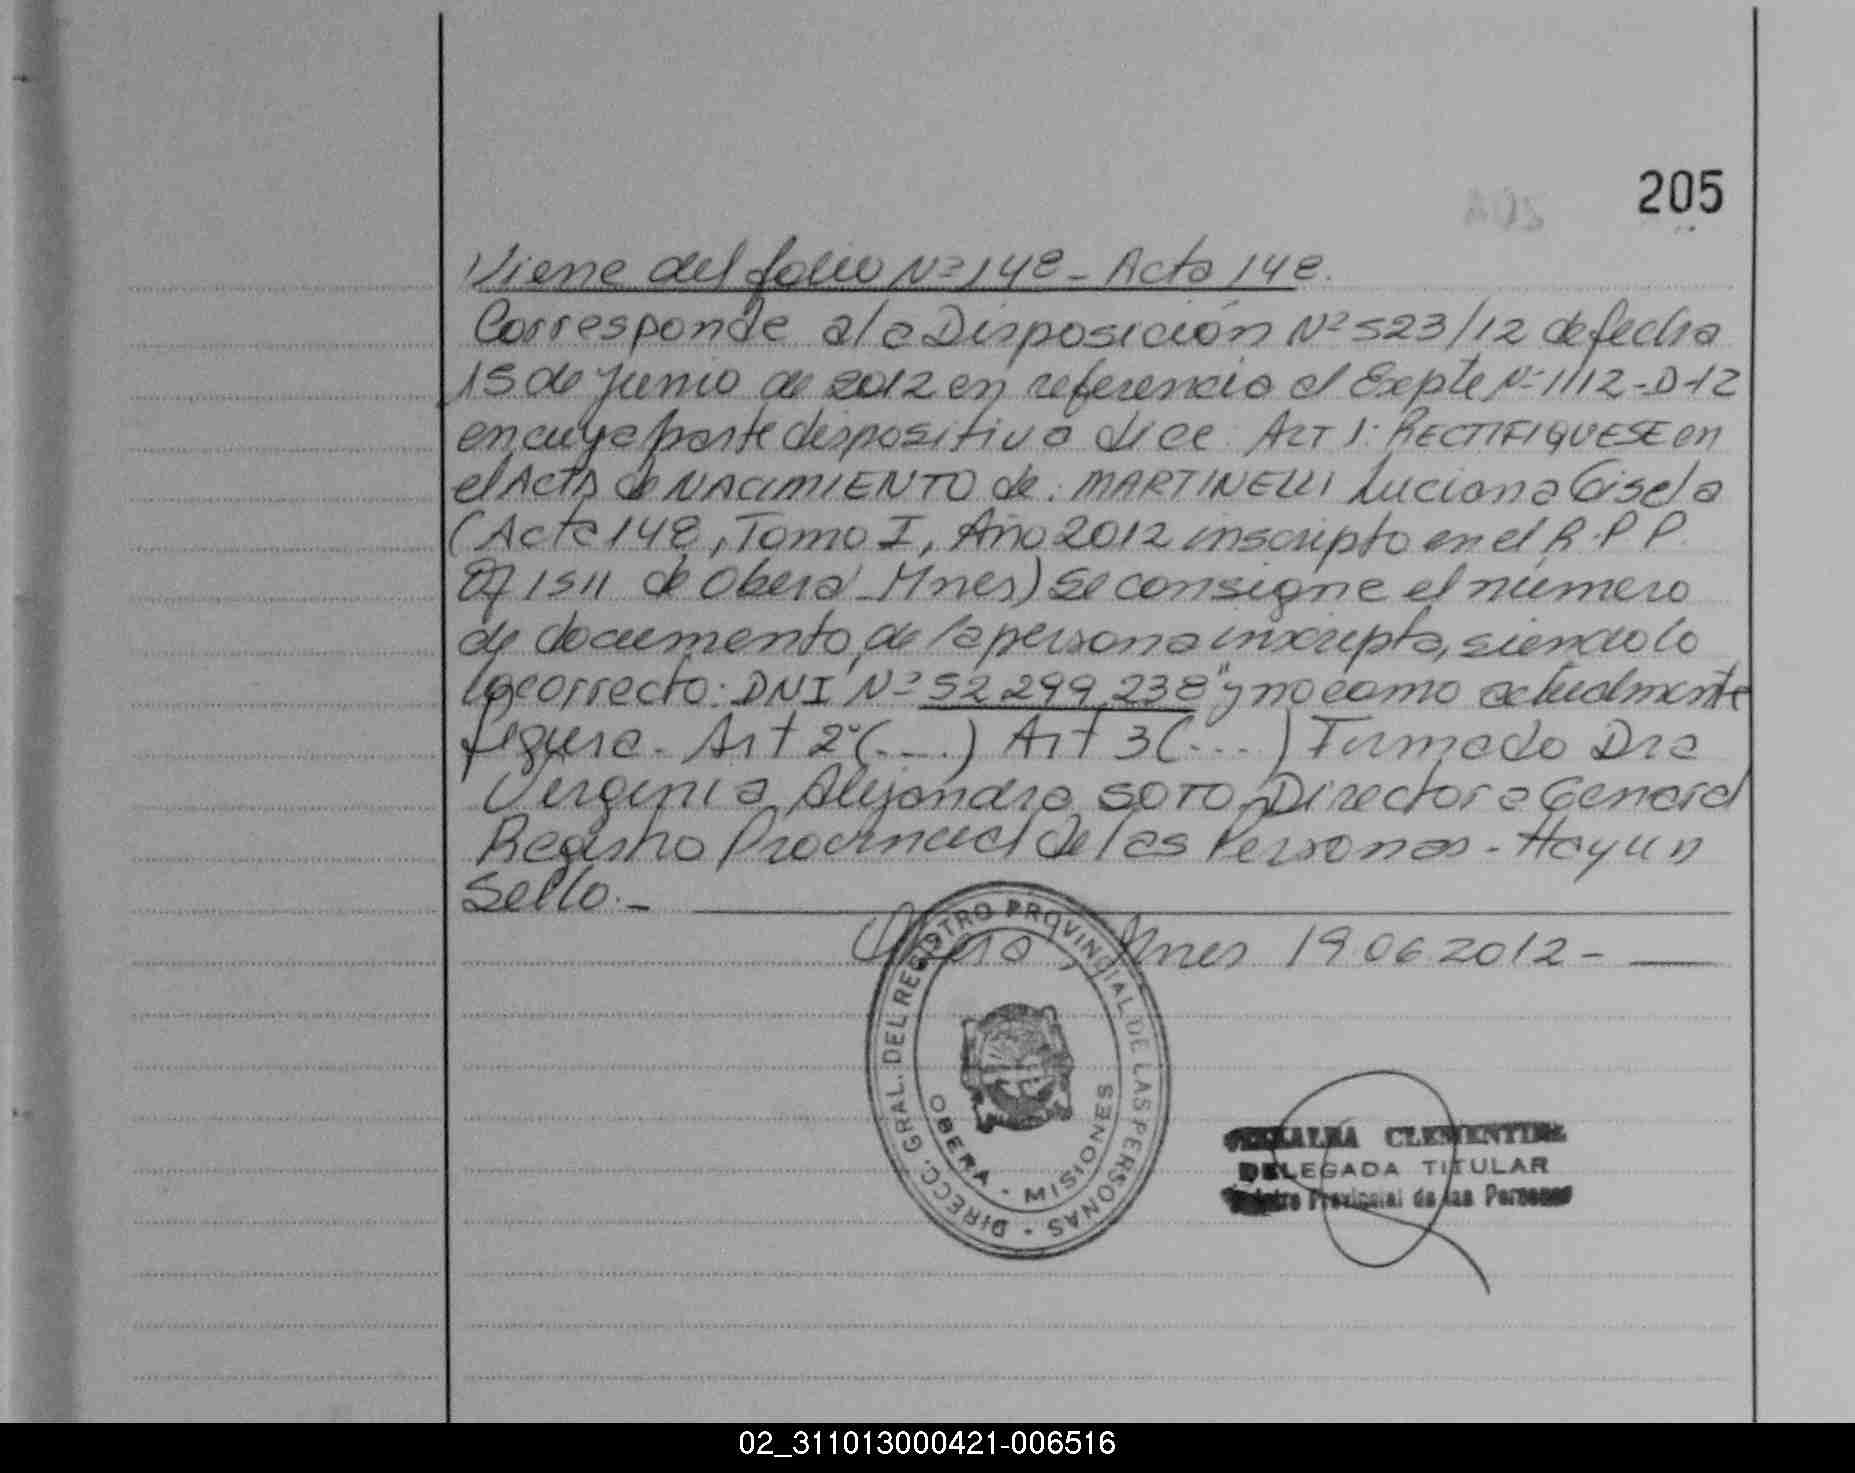 205
Viene del folio Nº 148 - Acta 148.
Corresponde a la Disposición Nº 523/12 de fecha
15 de Junio de 2012 en referencia al Expte Nº 1112-D-12
en cuya parte dispositiva dice: ART 1: RECTIFIQUESE en
el ACTA de NACIMIENTO de: MARTINELLI Luciana Gisela
(Acta 148, Tomo I, Año 2012 inscripto en el R.P.P.
Of 1511 de Oberá Mnes) se consigne el número
de documento de la persona inscripta, siendo lo
lo correcto: DNI Nº 52.299.238" y no como actualmente
figura. Art 2º (...) Art 3 (...) Firmado Dra
Virginia Alejandra SOTO, Directora General
Registro Provincial de las Personas - Hay un
Sello.-
Oberá, Mnes 19 06 2012 -
DIRECC. GRAL. DEL REGISTRO PROVINCIAL DE LAS PERSONAS -
OBERA - MISIONES
CLEMENTINA
DELEGADA TITULAR
Provincial de las Personas
02_311013000421-006516